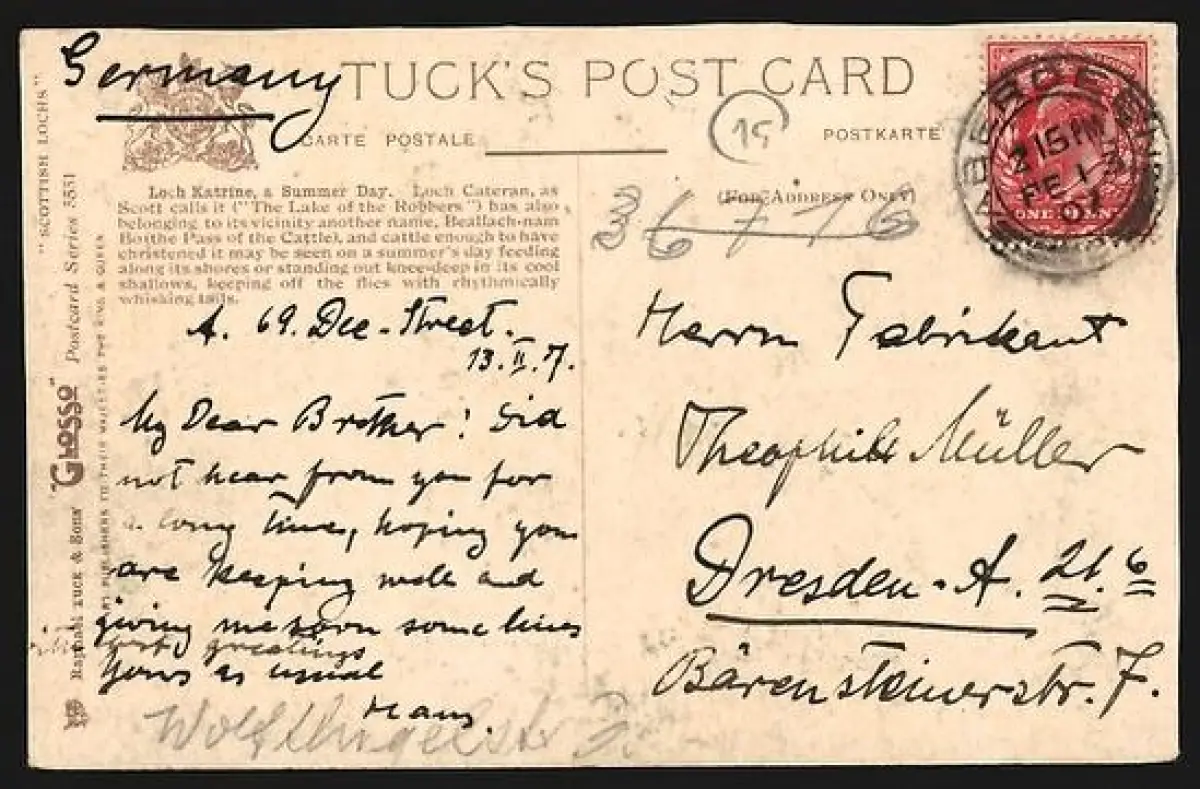 Germany
TUCK'S POST CARD
CARTE POSTALE
15
POSTKARTE
(FOR ADDRESS ONLY)
36776
ABERDEEN
2 15 PM
FE 13
07
ONE PENNY
Loch Katrine, a Summer Day. Loch Cateran, as
Scott calls it ("The Lake of the Robbers") has also,
belonging to its vicinity another name, Beallach-nam
Bo (the Pass of the Cattle), and cattle enough to have
christened it may be seen on a summer's day feeding
along its shores or standing out knee-deep in its cool
shallows, keeping off the flies with rhythmically
whisking tails.
A. 69. Dee-Street.
13.II.7.
My Dear Brother! Did
not hear from you for
a long time, hoping you
are keeping well and
giving me soon some lines
with best greetings
yours as usual
Hans.
Herrn Fabrikant
Theophil Müller
Dresden-A. 21.6
Bärensteinerstr. 7.
"SCOTTISH LOCHS"
"GLOSSO" Postcard Series 5551
Raphael Tuck & Sons'
ART PUBLISHERS TO THEIR MAJESTIES THE KING & QUEEN